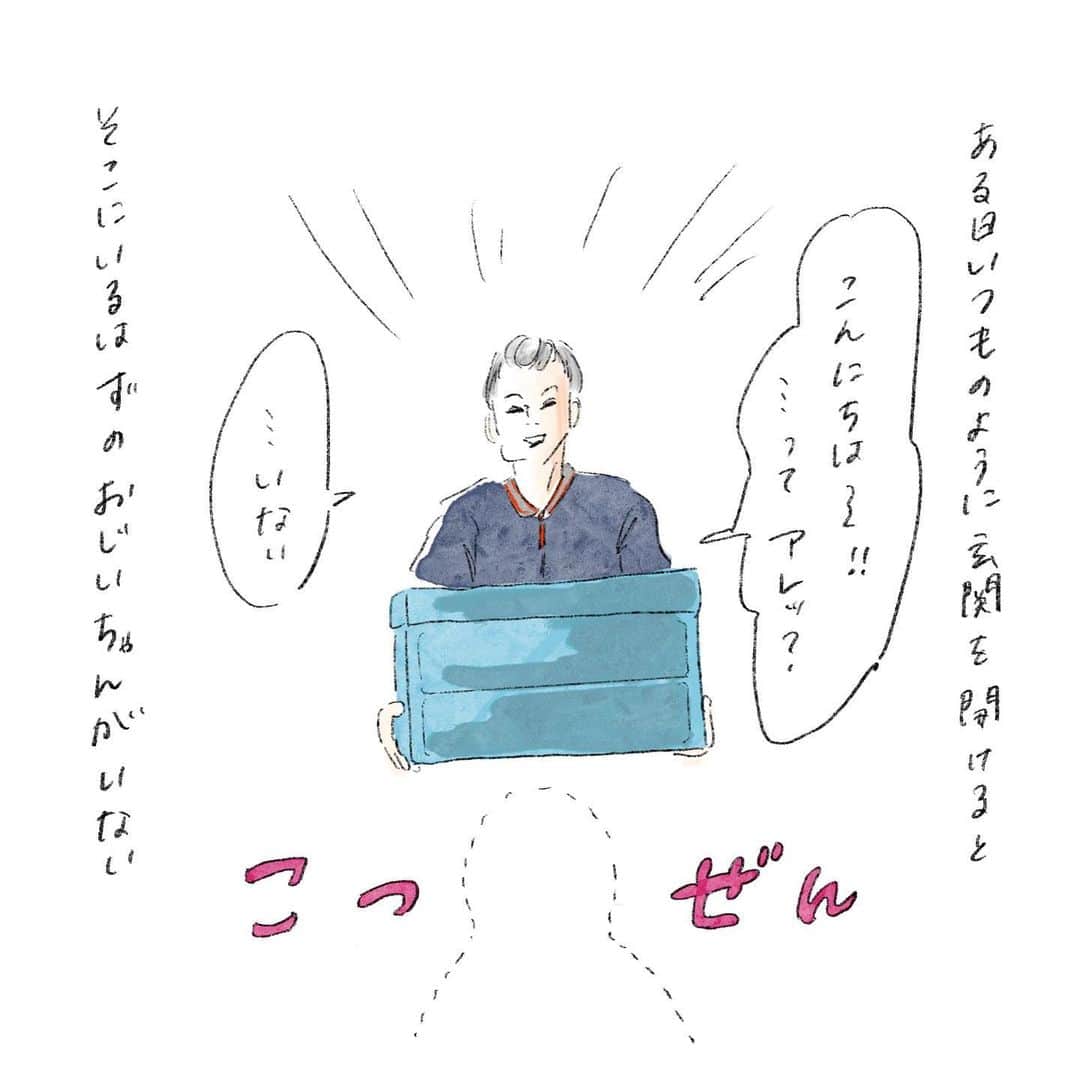 ある日いつものように玄関を開けると
こんにちは〜!!
…って アレッ?
…いない
そこにいるはずのおじいちゃんがいない
こつぜん